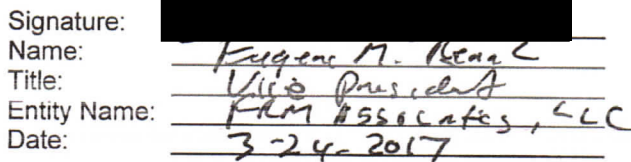 Signature:
Name: Eugene M.
Title: Vice President
Entity Name: FRM Associates, LLC
Date: 3-24-2017